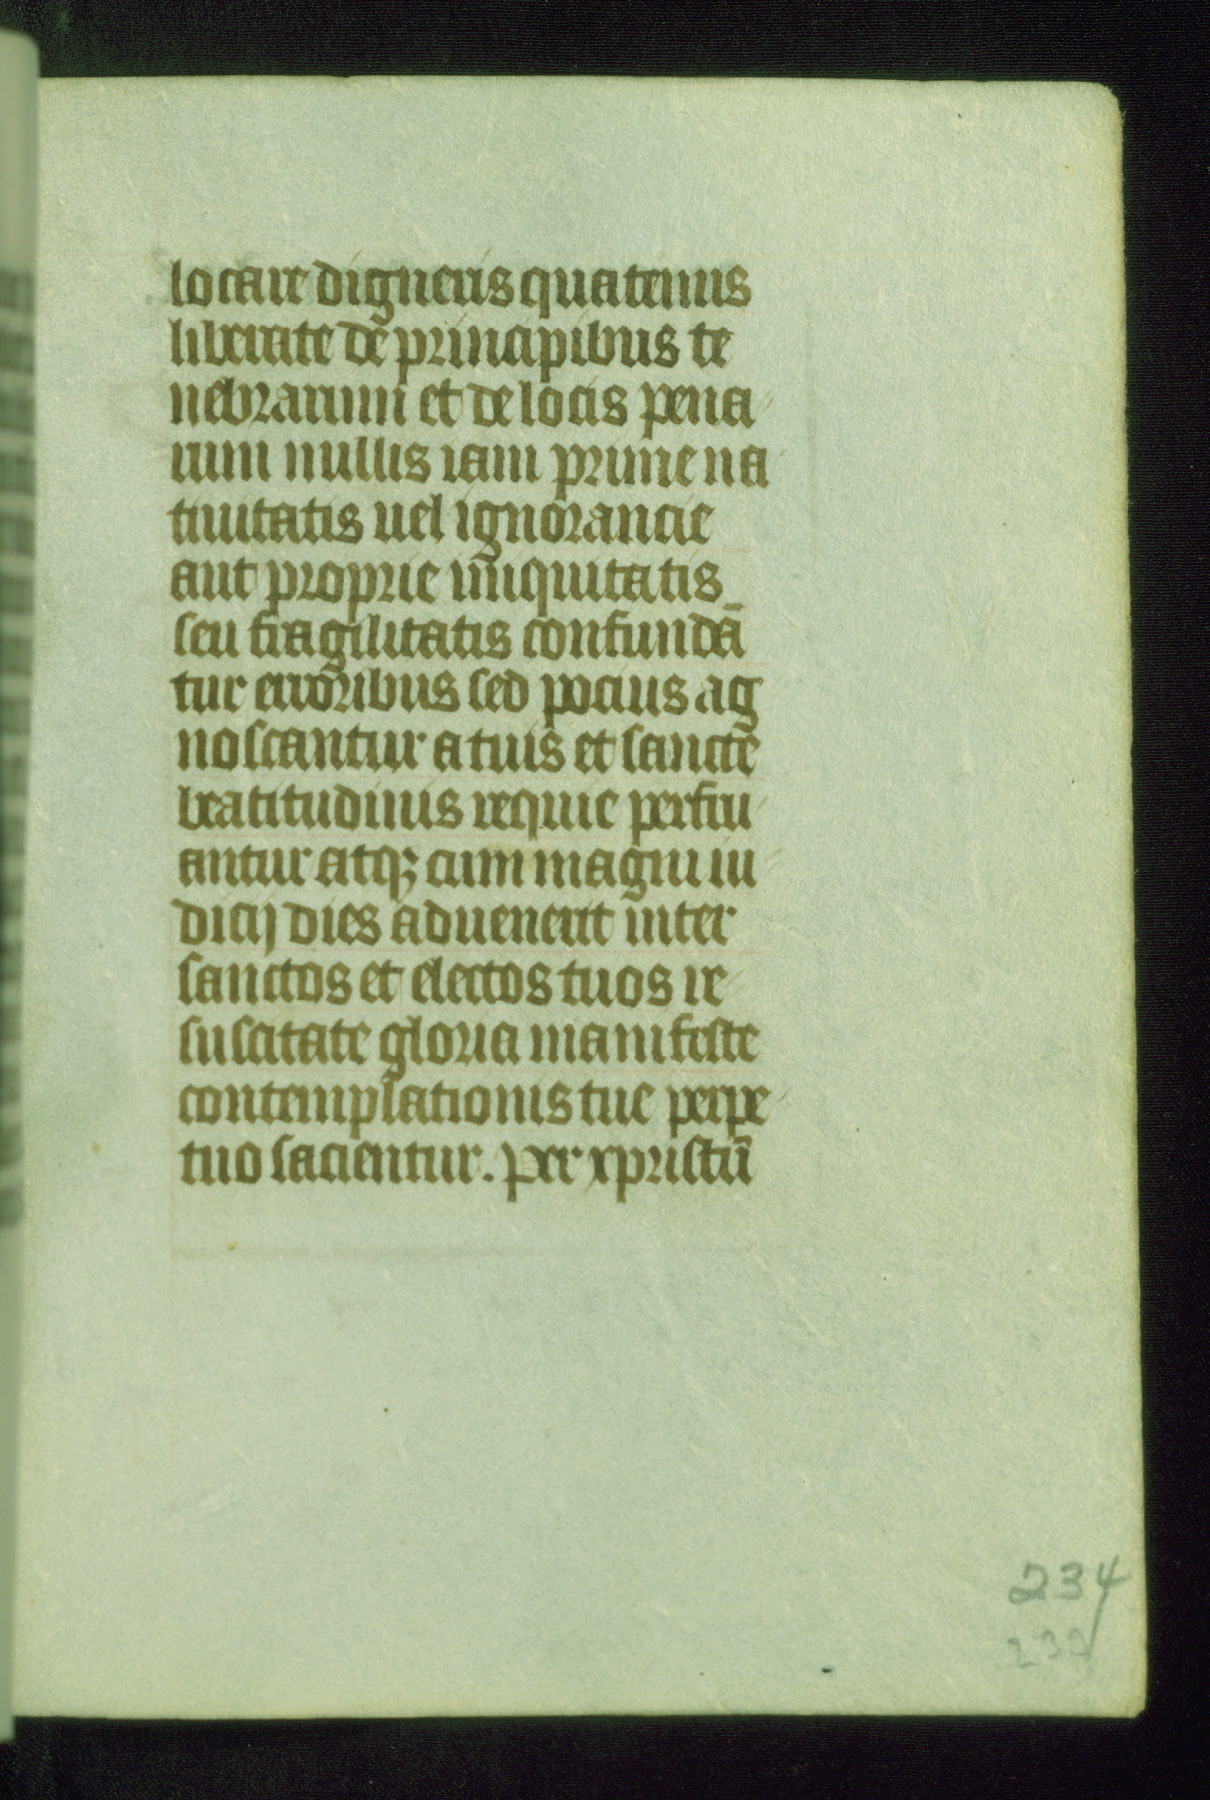 locare digneris quatenus
liberate de principibus te
nebrarum et de locis pena
rum nullis iam prime na
tiuitatis uel ignorancie
aut proprie iniquitatis
seu fragilitatis confundā
tur erroribus sed pocius ag
noscantur a tuis et sancte
beatitudinis requie perfru
antur atqꝫ cum magni iu
dicij dies aduenerit inter
sanctos et electos tuos re
suscitate gloria manifeste
contemplationis tue perpe
tuo sacientur. per xpristū
234
239